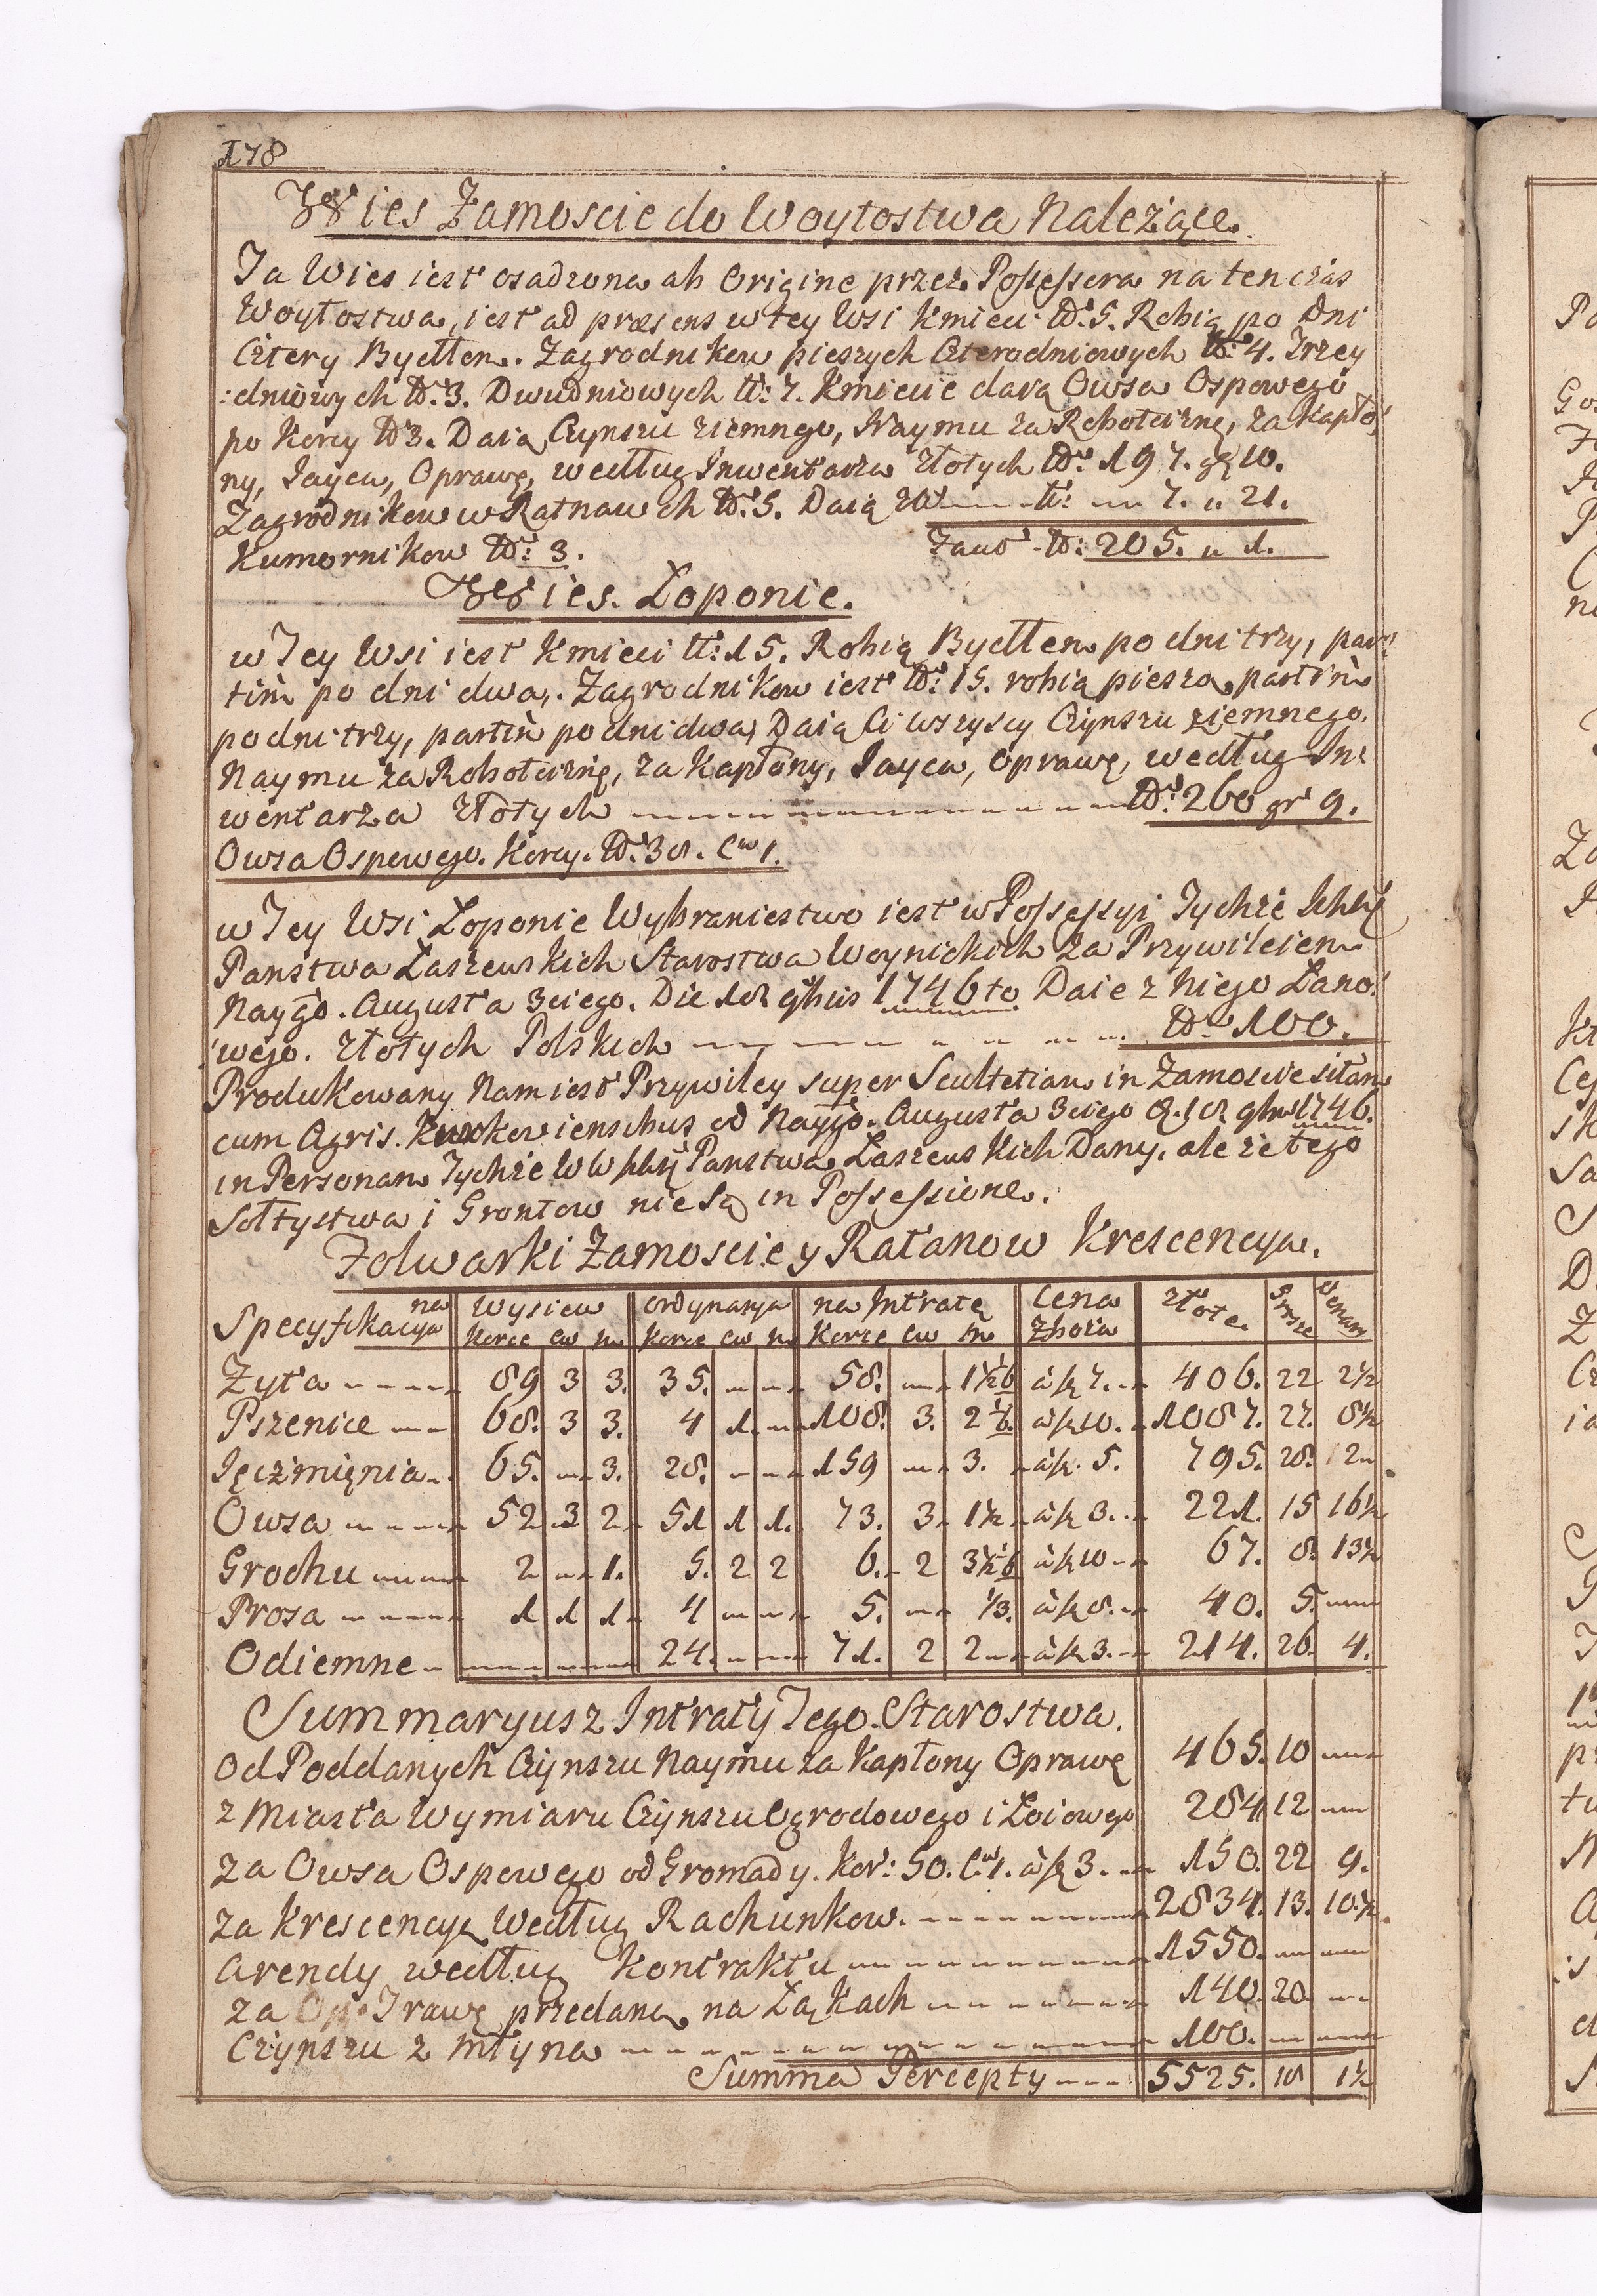 178
Wies Zamoscie do Woytostwa Należące.
Ta Wies iest osadzona ab Origine przez Possessora na ten czas
Woytostwa, iest ad præsens w tey Wsi Kmieci Nro 5. Robią po Dni
Cztery Bydłem. Zagrodnikow pieszych Czterodniowych Nro 4. Trzey
:dniowych Nro 3. Dwudniowych N: 7. Kmiecie daią Owsa Ospowego
po Korcy Nro 3. Daią Czynszu ziemnego, Naymu za Robociznę, za Kapło:
ny, Iayca, Oprawę, według Inwentarza Złotych Nro 197. gr 10.
Zagrodnikow w Ratnawach Nro 5. Daią zł N: 7. " 21.
Kumornikow Nro 3. Facit N: 205. " 1.
Wies. Łoponie.
w Tey Wsi iest Kmieci N: 15. Robią Bydłem po dni trzy, par:
tim po dni dwa,. Zagrodnikow iest Nro 15. robią pieszo, partim
po dni trzy, partim po dni dwa, Daią Ci wszyscy Czynszu ziemnego.
Naymu za Robociznę, za Kapłony, Iayca, Oprawę, według In:
wentarza Złotych Nro 260 gr 9.
Owsa Ospowego. Korcy. Nro 38. Cw 1.
w Tey Wsi Łoponie Wybraniestwo iest w Possessyi Tychże
Panstwa Łaszewskich Starostwa Woynickich za Przywileiem
Naygo. Augusta 3ciego. Die 18 9bris 1746to Daie z niego Łano:
:wego. Złotych Polskich Nro 100.
Produkowany Nam iest Przywiley super Scultetiam in Zamoscie sitam
cum Agris. od Nayygo. Augusta 3ciego d. 18. 9bris 1746.
in Personam Tychże Panstwa Łaszewskich Dany, ale że tego
Sołtystwa i Grontow nie są in Possessione.
Folwarki Zamoscie y Ratanow Krescencya.
Specyfikacya na | Wysiew | Ordynarya | na Intratę | Cena | Złote. | Grosze | Denar
Korce cw m | Korce cw m | Korce cw m | Zboża
Zyta 89 3 3. 35. 58. 1 1/2 1/6 à fl 7. 406. 22 2 1/2
Pszenice 68. 3 3. 4 1. 108. 3. 2 1/6. à fl 10. 1087. 27. 8 1/2
Ięczmięnia 65. 3. 28. 159 3. à fl. 5. 795. 28. 12
Owsa 52 3 2 51 1 1. 73. 3 1 1/2 à fl 3. 221. 15 16 1/2
Grochu 2 1. 5. 2 2 6. 2 3 1/2 1/6 à fl 10 67. 8. 13 1/2
Prosa 1 1 1 4 5. 1/3. à fl 8. 40. 5.
Odiemne 24. 71. 2 2 à fl 3. 214. 26. 4.
Summaryusz Intraty Tego. Starostwa.
Od Poddanych Czynszu Naymu za Kapłony Oprawę 465. 10
z Miasta Wymiaru Czynszu Ogrodowego i Łoiowego 284 12
za Owsa Ospowego od Gromady. Kor: 50. Cw 1. à fl 3. 150. 22 9.
za Krescencyą Według Rachunkow. 2834. 13. 10 1/2.
Arendy według Kontraktu 1550.
za Trawę przedaną na Łąkach 140. 20
Czynszu z Młyna 100.
Summa Percepty 5525. 18 1 1/2